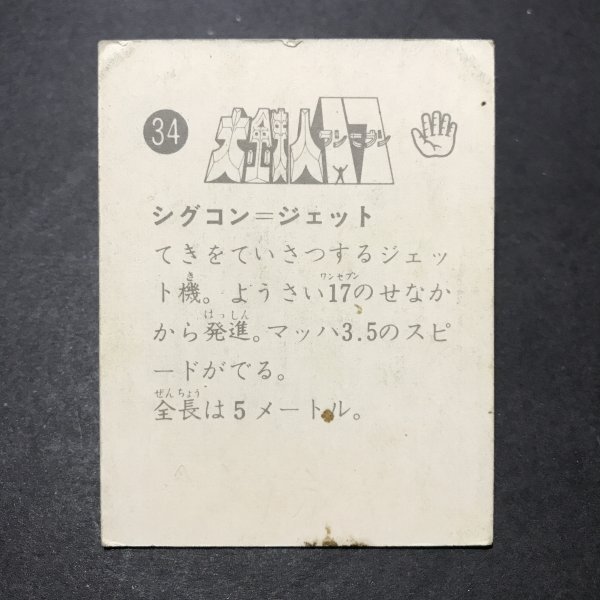 34
大鉄人17
ワンセブン
シグコン=ジェット
てきをていさつするジェッ
ト機。ようさい17のせなか
から発進。マッハ3.5のスピ
ードがでる。
全長は5メートル。